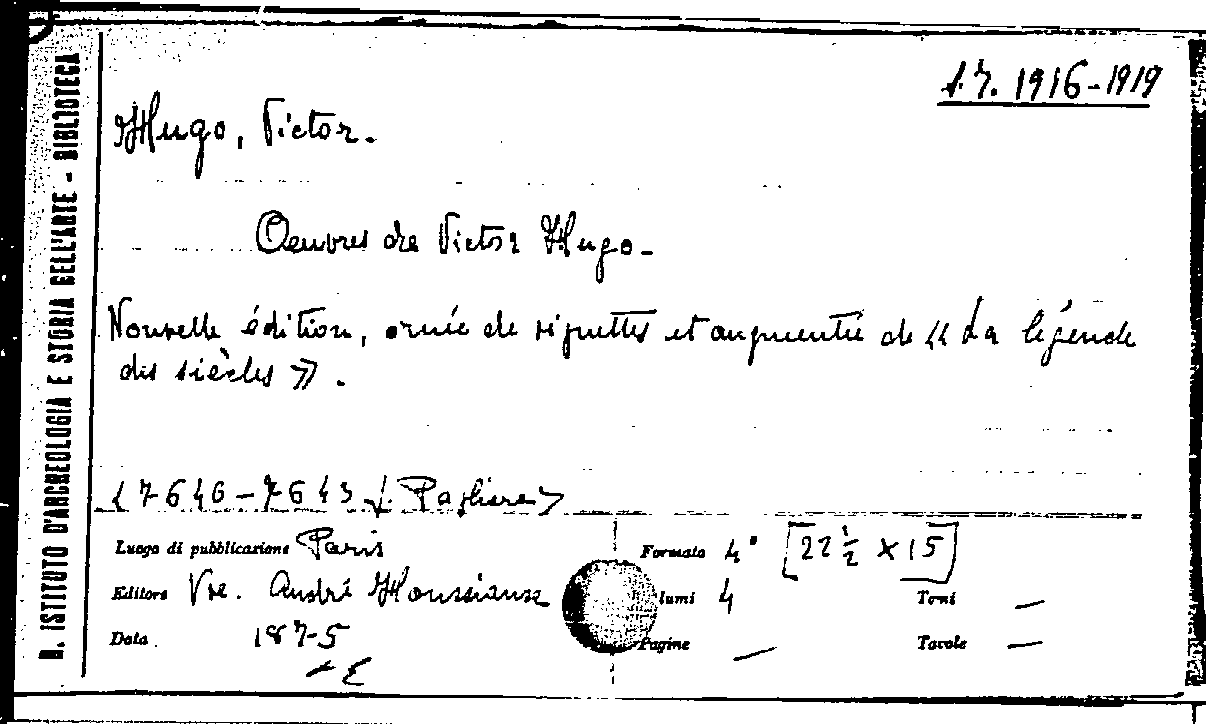 R. ISTITUTO D'ARCHEOLOGIA E STORIA DELL'ARTE - BIBLIOTECA
1.7. 1916-1919
Hugo, Victor.
Oeuvres de Victor Hugo.
Nouvelle édition, ornée de vignettes et augmentée de « La légende
des siècles ».
< 7646-7643
Luogo di pubblicazione Paris
Formato 4° [22 1/2 x 15]
Editore Vve. André Houssiaux
lumi 4 Tomi —
Data 1875
Pagine — Tavole —